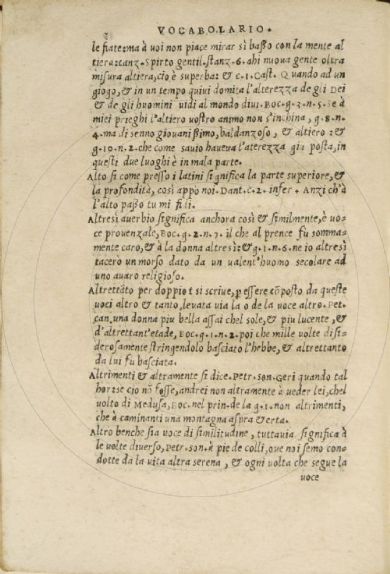 VOCABOLARIO.
le fiate: ma à voi non piace mirar sì basso con la mente al
tiera: canz. Spirto gentil. stanz. 6. ahi nuova gente oltra
misura altiera, cio è superba: & c. 1. Cast. Quando ad un
giogo, & in un tempo quivi domita l'alterezza de gli Dei
& de gli huomini vidi al mondo divi. Boc. g. 2. n. 5. Se à
miei prieghi l'altiero vostro animo non s'inchina, g. 8. n
4. ma di senno giovanissimo, baldanzoso, & altiero: &
g. 10. n. 2. che come savio haveva l'alterezza giu posta, in
questi due luoghi è in mala parte.
Alto si come presso i latini significa la parte superiore, &
la profondità, così appo noi. Dant. c. 2. infer. Anzi ch'à
l'alto passo tu mi fidi.
Altresi averbio significa anchora così & similmente, è vo-
ce provenzale, Boc. g. 2. n. 7. il che al prence fu somma-
mente caro, & à la donna altresi: & g. 1. n. 6. ne io altresi
tacerò un morso dato da un valent'huomo secolare ad
uno avaro religioso.
Altrettãto per doppio t si scrive, p essere cõposto da queste
voci altro & tanto, levata via la o de la voce altro. Pet.
can, una donna piu bella assai che'l sole, & piu lucente, &
d'altrettant'etade, Boc. g. 1. n. 2. poi che mille volte disi-
derosamente stringendolo basciato l'hebbe, & altrettanto
da lui fu basciata.
Altrimenti & altramente si dice. Petr. son. Geri quando tal
hor: se cio nõ fosse, andrei non altramente à veder lei, che'l
volto di Medusa, Boc. nel prin. de la g. 1. non altrimenti,
che à caminanti una montagna aspra & erta.
Altro benche sia voce di similitudine, tuttavia significa à
le volte diverso, Petr. son. è pie de colli, ove noi semo con-
dotte da la vita altra serena, & ogni volta che segue la
voce